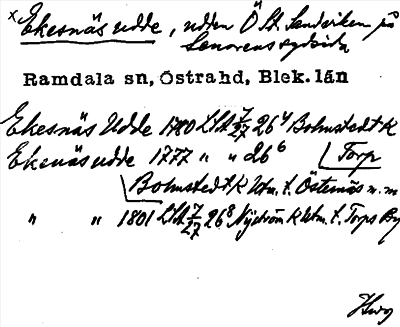 × Ekesnäs udde, udden Ö St. Sandviken på
Senorens sydsida
Ramdala sn, Östrahd, Blek. län
Ekesnäs Udde 1780 LSA 7/27 26⁴ Bohmstedt K
Ekenäs udde 1777 " " 26⁶ Torp
Bohmstedt K Utm. t. Östernäs m. m
" " 1801 LSA 7/27 26⁸ Nyström K Utm. t. Torps By